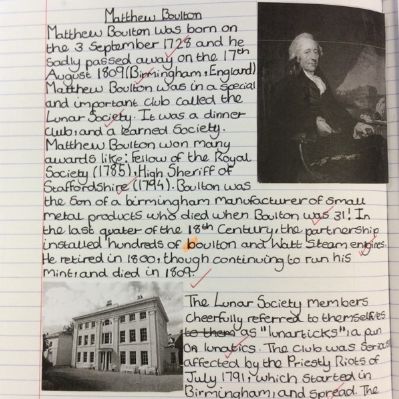 Matthew Boulton
Matthew Boulton was born on
the 3 September 1728 and he
sadly passed away on the 17th
August 1809 (Birmingham, England)
Matthew Boulton was in a special
and important club called the
Lunar Society. It was a dinner
club, and a learned Society.
Matthew Boulton won many
awards like: Fellow of the Royal
Society (1785), High Sheriff of
Staffordshire (1794). Boulton was
the Son of a birmingham manufacturer of small
metal products who died when Boulton was 31! In
the last quater of the 18th Century, the partnership
installed hundreds of boulton and Watt Steam engines.
He retired in 1800, though continuing to run his
mint, and died in 1809.
The Lunar Society members
cheerfully referred to themselfs
to them as "lunarticks", a pun
on lunatics. The club was Serious
affected by the Priestly Riots of
July 1791, which started in
Birmingham, and spread. The